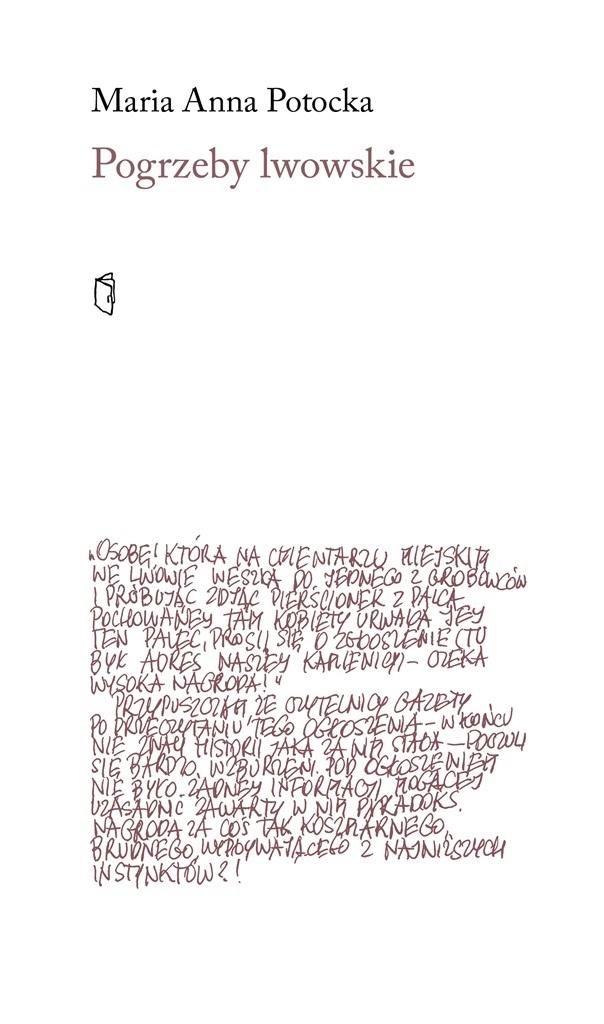 Maria Anna Potocka
Pogrzeby lwowskie
„OSOBĘ, KTÓRA NA CMENTARZU MIEJSKIM
WE LWOWIE WESZŁA DO JEDNEGO Z GROBOWCÓW
I PRÓBUJĄC ZDJĄĆ PIERŚCIONEK Z PALCA
POCHOWANEJ TAM KOBIETY URWAŁA JEJ
TEN PALEC, PROSI SIĘ O ZGŁOSZENIE (TU
BYŁ ADRES NASZEJ KAMIENICY) – CZEKA
WYSOKA NAGRODA!"
PRZYPUSZCZAM ŻE CZYTELNICY GAZETY
PO PRZECZYTANIU TEGO OGŁOSZENIA – W KOŃCU
NIE ZNALI HISTORII JAKA ZA NIM STAŁA – POCZULI
SIĘ BARDZO WZBURZENI. POD OGŁOSZENIEM
NIE BYŁO ŻADNEJ INFORMACJI MOGĄCEJ
UZASADNIĆ ZAWARTY W NIM PARADOKS.
NAGRODA ZA COŚ TAK KOSZMARNEGO,
BRUDNEGO, WYPŁYWAJĄCEGO Z NAJNIŻSZYCH
INSTYNKTÓW?!